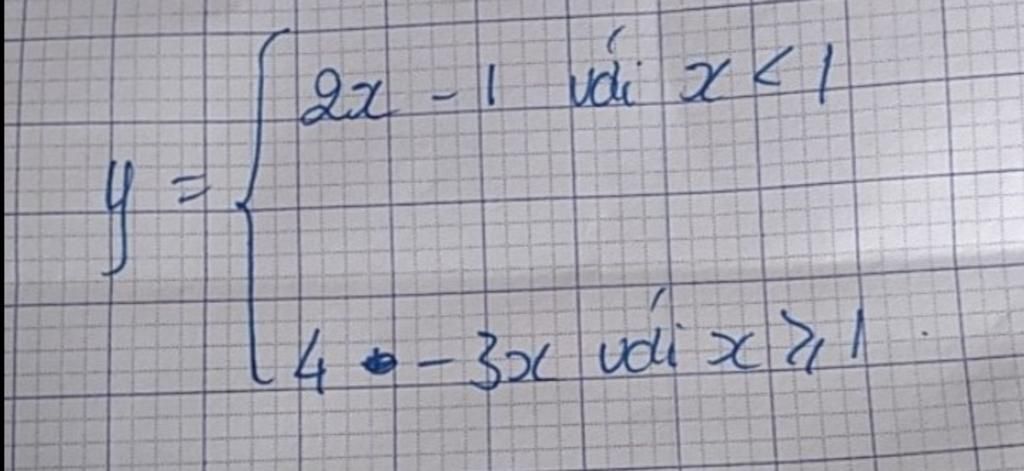 2x - 1 với x < 1
y =
4 - 3x với x ⩾ 1.